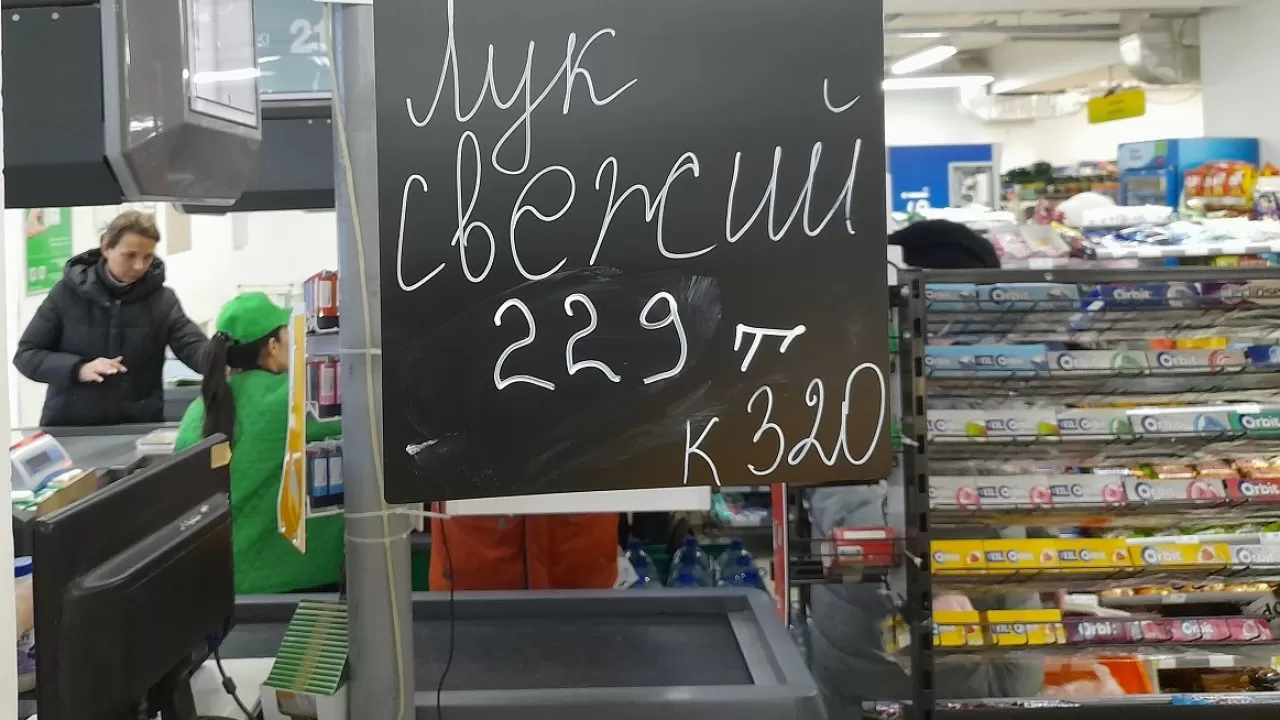 Лук
свежий
229 тг
к 320
21
Orbit
Orbit
Orbit
Orbit
Orbit
Orbit
Orbit
Orbit
Orbit
Orbit
Orbit